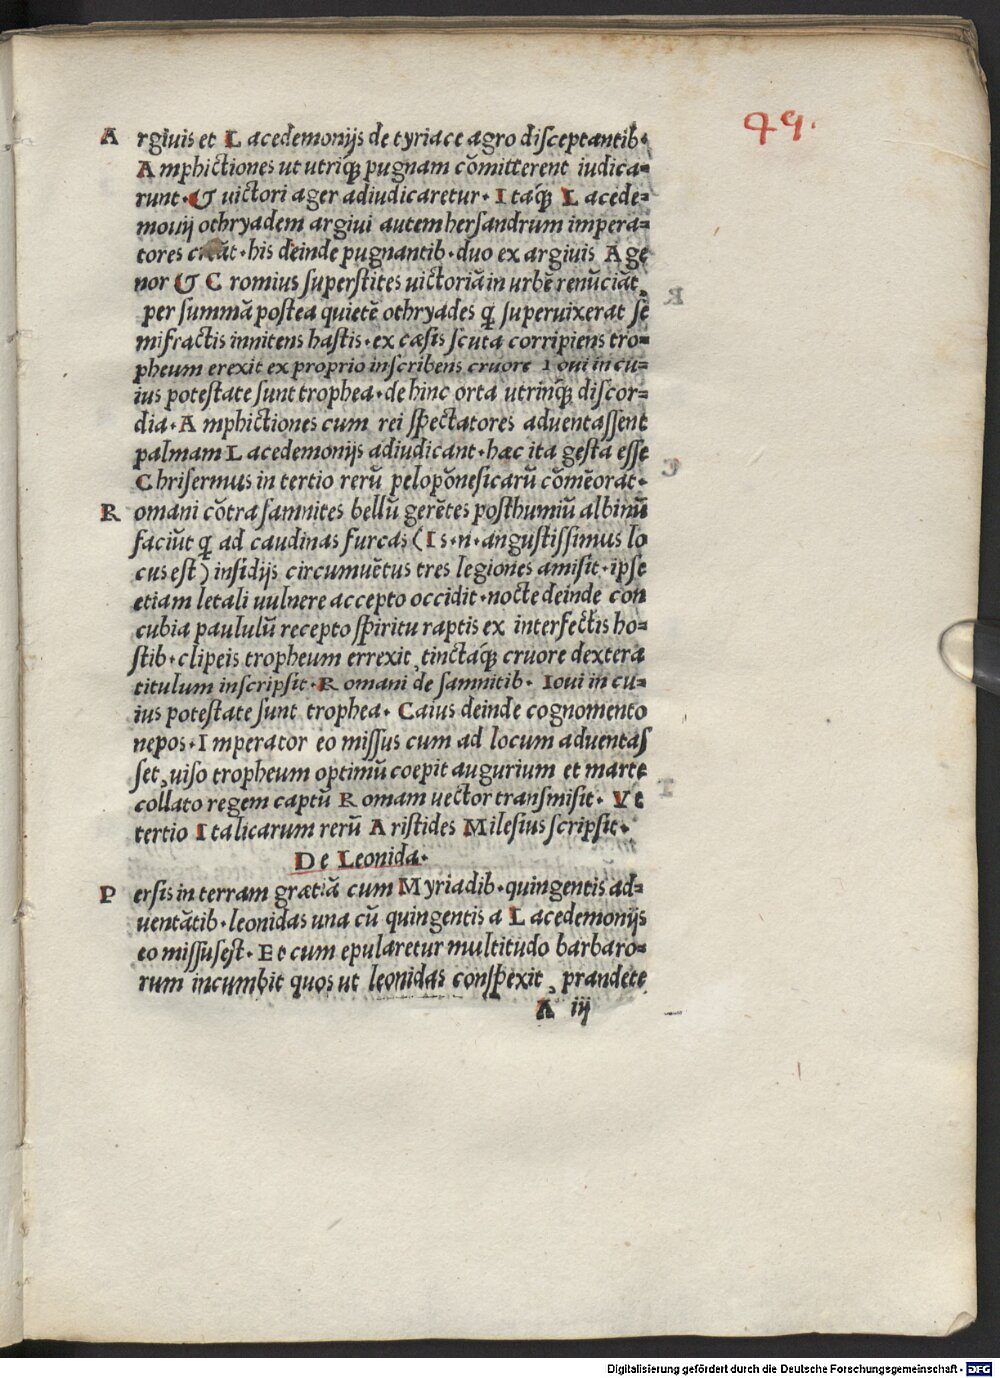 49.
A rgiuis et L acedemonijs de tyriace agro disceptantib·
A mphictiones ut utriq̃ pugnam cõmitterent iudica=
runt· & uictori ager adiudicaretur· I taq̃ L acede=
monij othryadem argiui autem hersandrum impera=
tores · his deinde pugnantib· duo ex argiuis A ge
nor & C romius superstites uictoriã in urbẽ renũciãt,
per summã postea quietẽ othryades q̃ superuixerat se
mifractis innitens hastis· ex cæsis scuta corripiens tro=
pheum erexit ex proprio inscribens cruore I oui in cu=
ius potestate sunt trophea· de hinc orta utrinq̃ discor=
dia· A mphictiones cum rei spectatores aduentassent
palmam L acedemonijs adiudicant· hæc ita gesta esse
C hrisermus in tertio rerũ pelopõnesicarũ cõmẽorat·
R omani cõtra samnites bellũ gerẽtes posthumiũ albinũ
faciũt q̃ ad caudinas furcas ( I s·n·angustissimus lo
cus est ) insidijs circumuẽtus tres legiones amisit· ipse
etiam letali uulnere accepto occidit· nocte deinde con
cubia paululũ recepto spiritu raptis ex interfectis ho=
stib· clipeis tropheum errexit, tinctaq̃ cruore dextera
titulum inscripsit· R omani de samnitib· Ioui in cu=
ius potestate sunt trophea· Caius deinde cognomento
nepos· I mperator eo missus cum ad locum aduentas
set, uiso tropheum optimũ coepit augurium et marte
collato regem captũ R omam uector transmisit· Vt
tertio I talicarum rerũ A ristides Milesius scripsit·
De Leonida·
P ersis in terram grætiã cum Myriadib· quingentis ad=
uentãtib· leonidas una cũ quingentis a L acedemonijs
eo missus est· Et cum epularetur multitudo barbaro=
rum incumbit quos ut leonidas conspexit, prandete
A iij
Digitalisierung gefördert durch die Deutsche Forschungsgemeinschaft - DFG